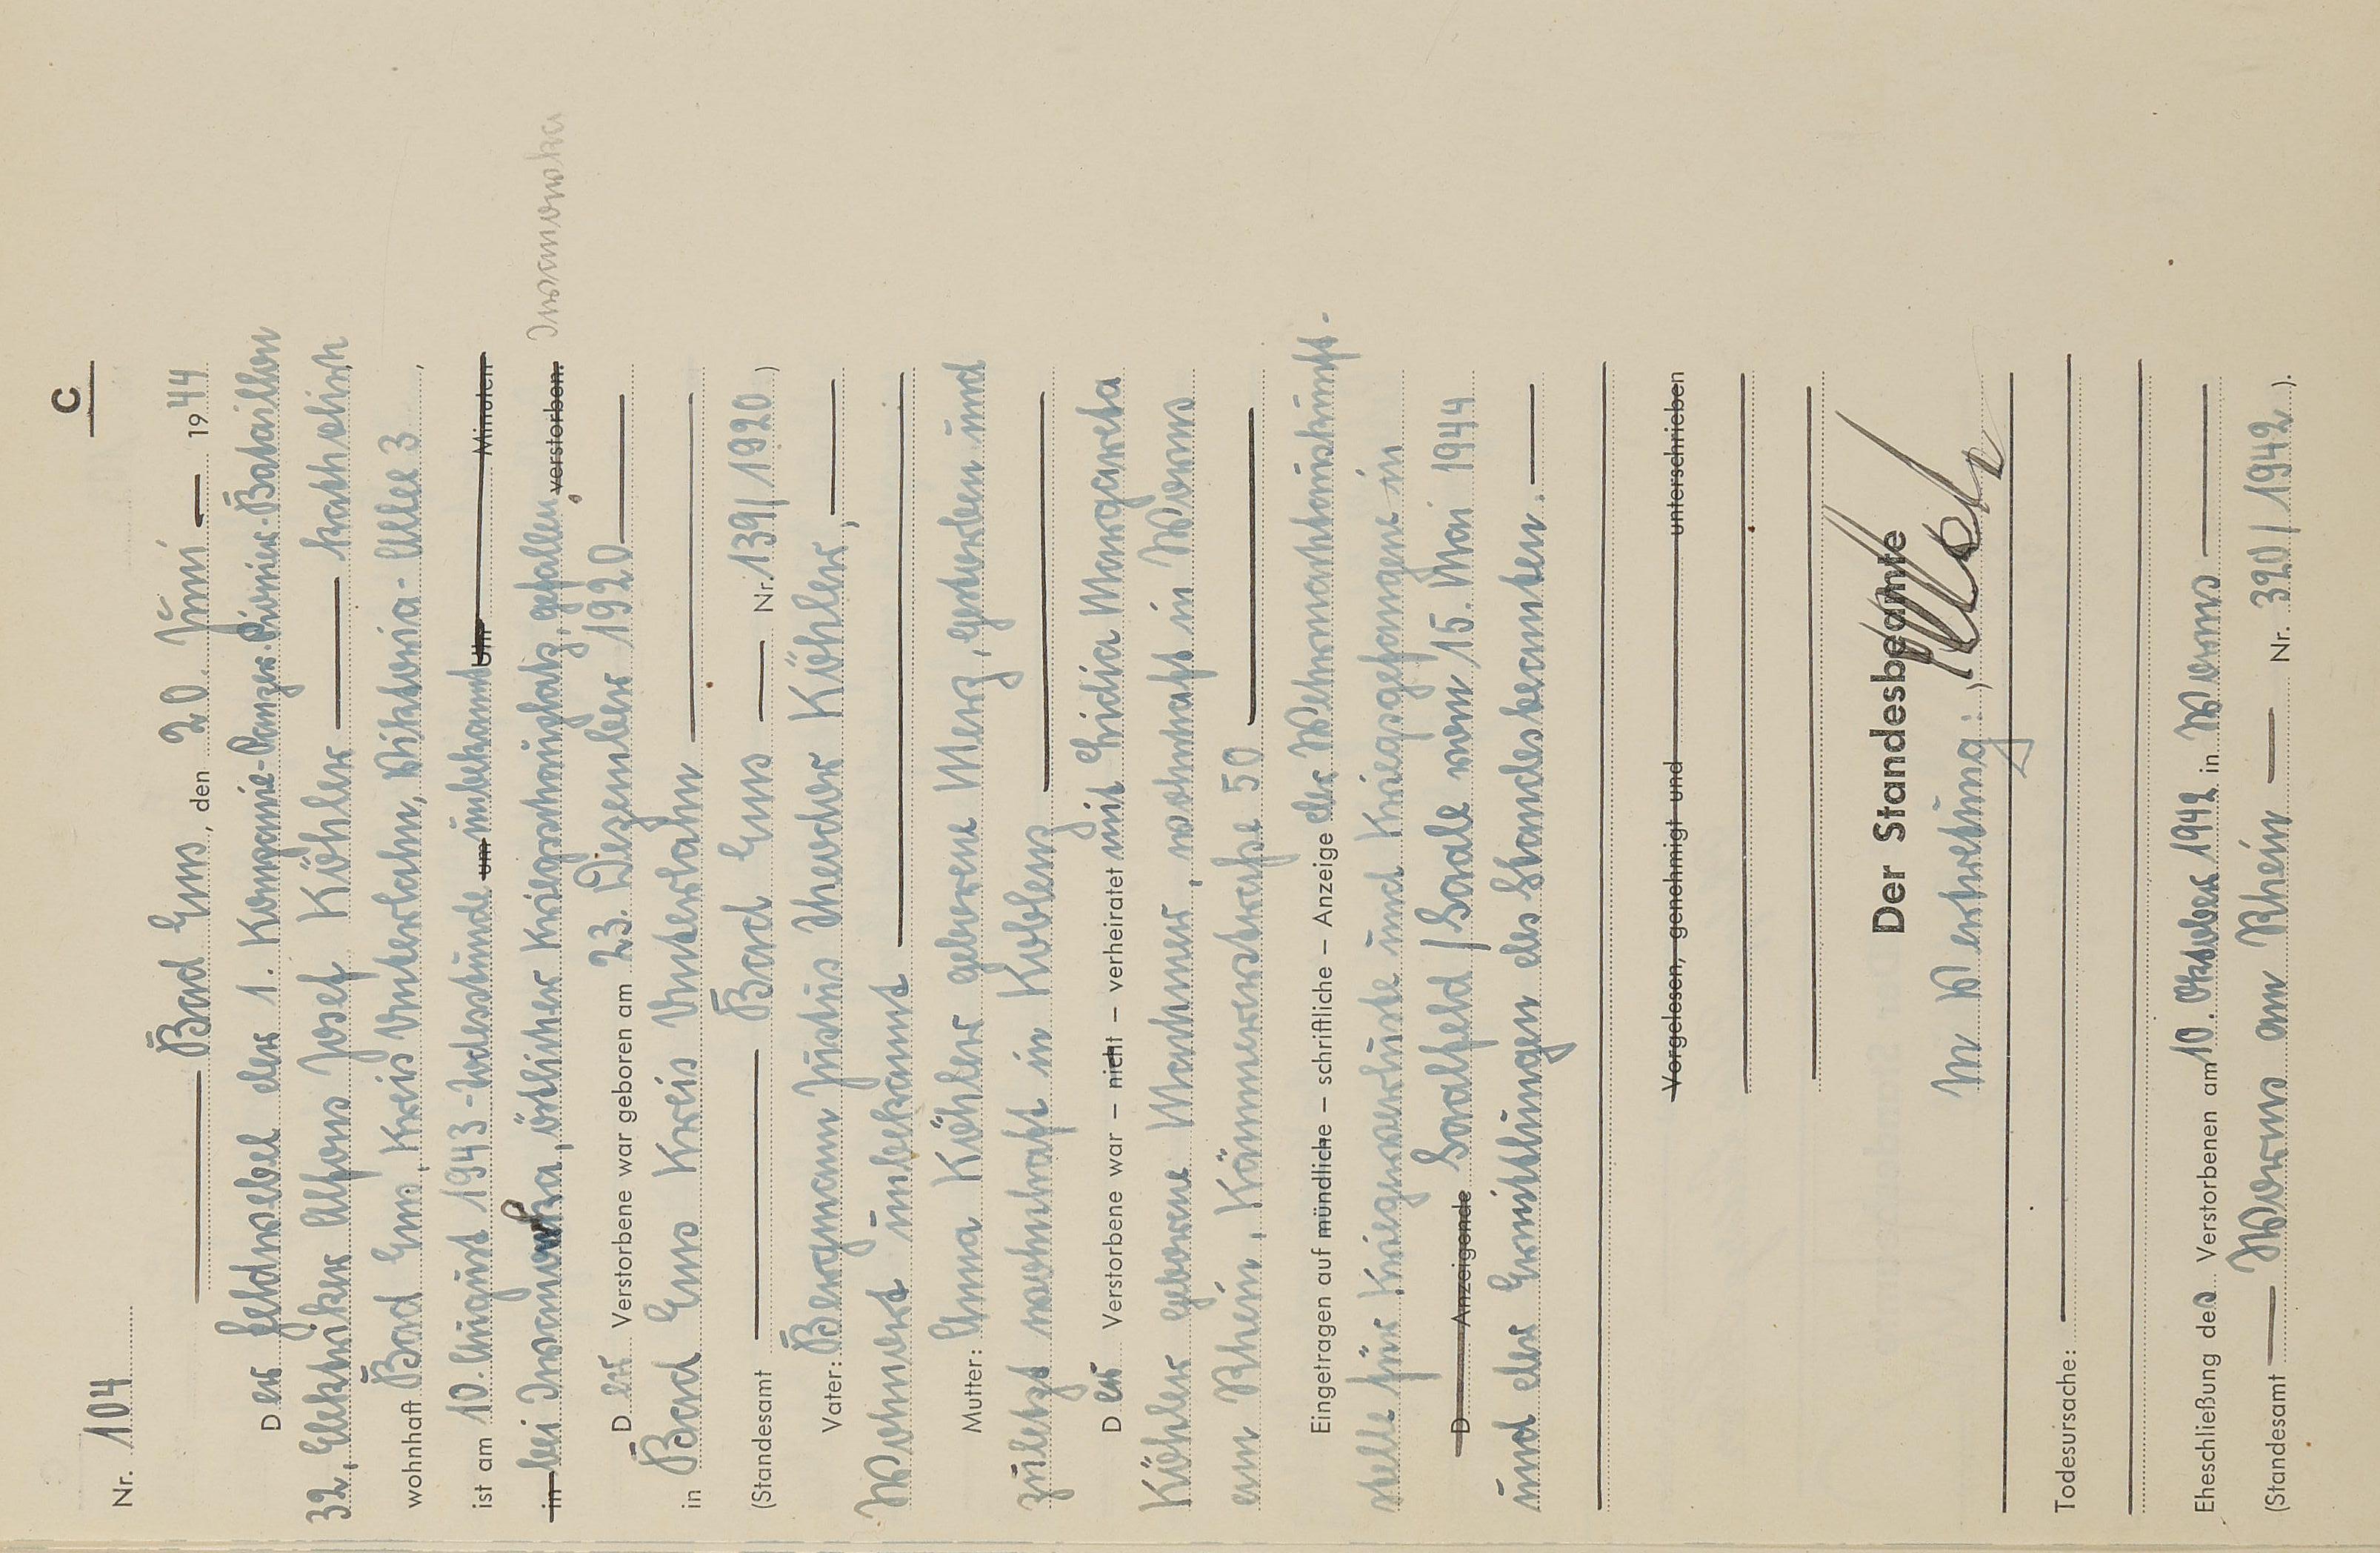 C
Nr. 104
Bad Ems, den 20. Juni 1944
Der Feldwebel der 1. Kompanie-Panzer-Pionier-Bataillon
32, Elektriker Alfons Josef Köhler katholisch
wohnhaft Bad Ems, Kreis Unterlahn, Viktoria-Allee 3,
ist am 10. August 1943 - Todesstunde um unbekannt Uhr Minuten
in bei Iwanowka, östlicher Kriegsschauplatz, gefallen, verstorben. Iwanowka
Der Verstorbene war geboren am 23. Dezember 1920
in Bad Ems Kreis Unterlahn
(Standesamt Bad Ems Nr. 139/1920)
Vater: Bergmann Justus Theodor Köhler,
Wohnort unbekannt
Mutter: Anna Köhler geborene Merz, gestorben und
zuletzt wohnhaft in Koblenz
Der Verstorbene war – nicht – verheiratet mit Lidia Margareta
Köhler geborene Manthner, wohnhaft in Worms
am Rhein, Kämmererstraße 50
Eingetragen auf mündliche – schriftliche – Anzeige der Wehrmachtauskunft-
stelle für Kriegerverluste und Kriegsgefangene in
D Anzeigende Saalfeld/Saale vom 15. Mai 1944
und der Ermittlungen des Standesbeamten.
Vorgelesen, genehmigt und unterschrieben
Der Standesbeamte
In Vertretung:
Todesursache:
Eheschließung des Verstorbenen am 10. Oktober 1942 in Worms
(Standesamt Worms am Rhein Nr. 320/1942).